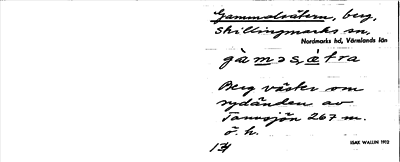 Gammalsätern, berg,
Skillingmarks sn,
Nordmarks hd, Värmlands län
gàməsæ̀tra
Berg väster om
sydänden av
Tannsjön 267 m.
ö. h.
134
ISAK WALLIN 1912